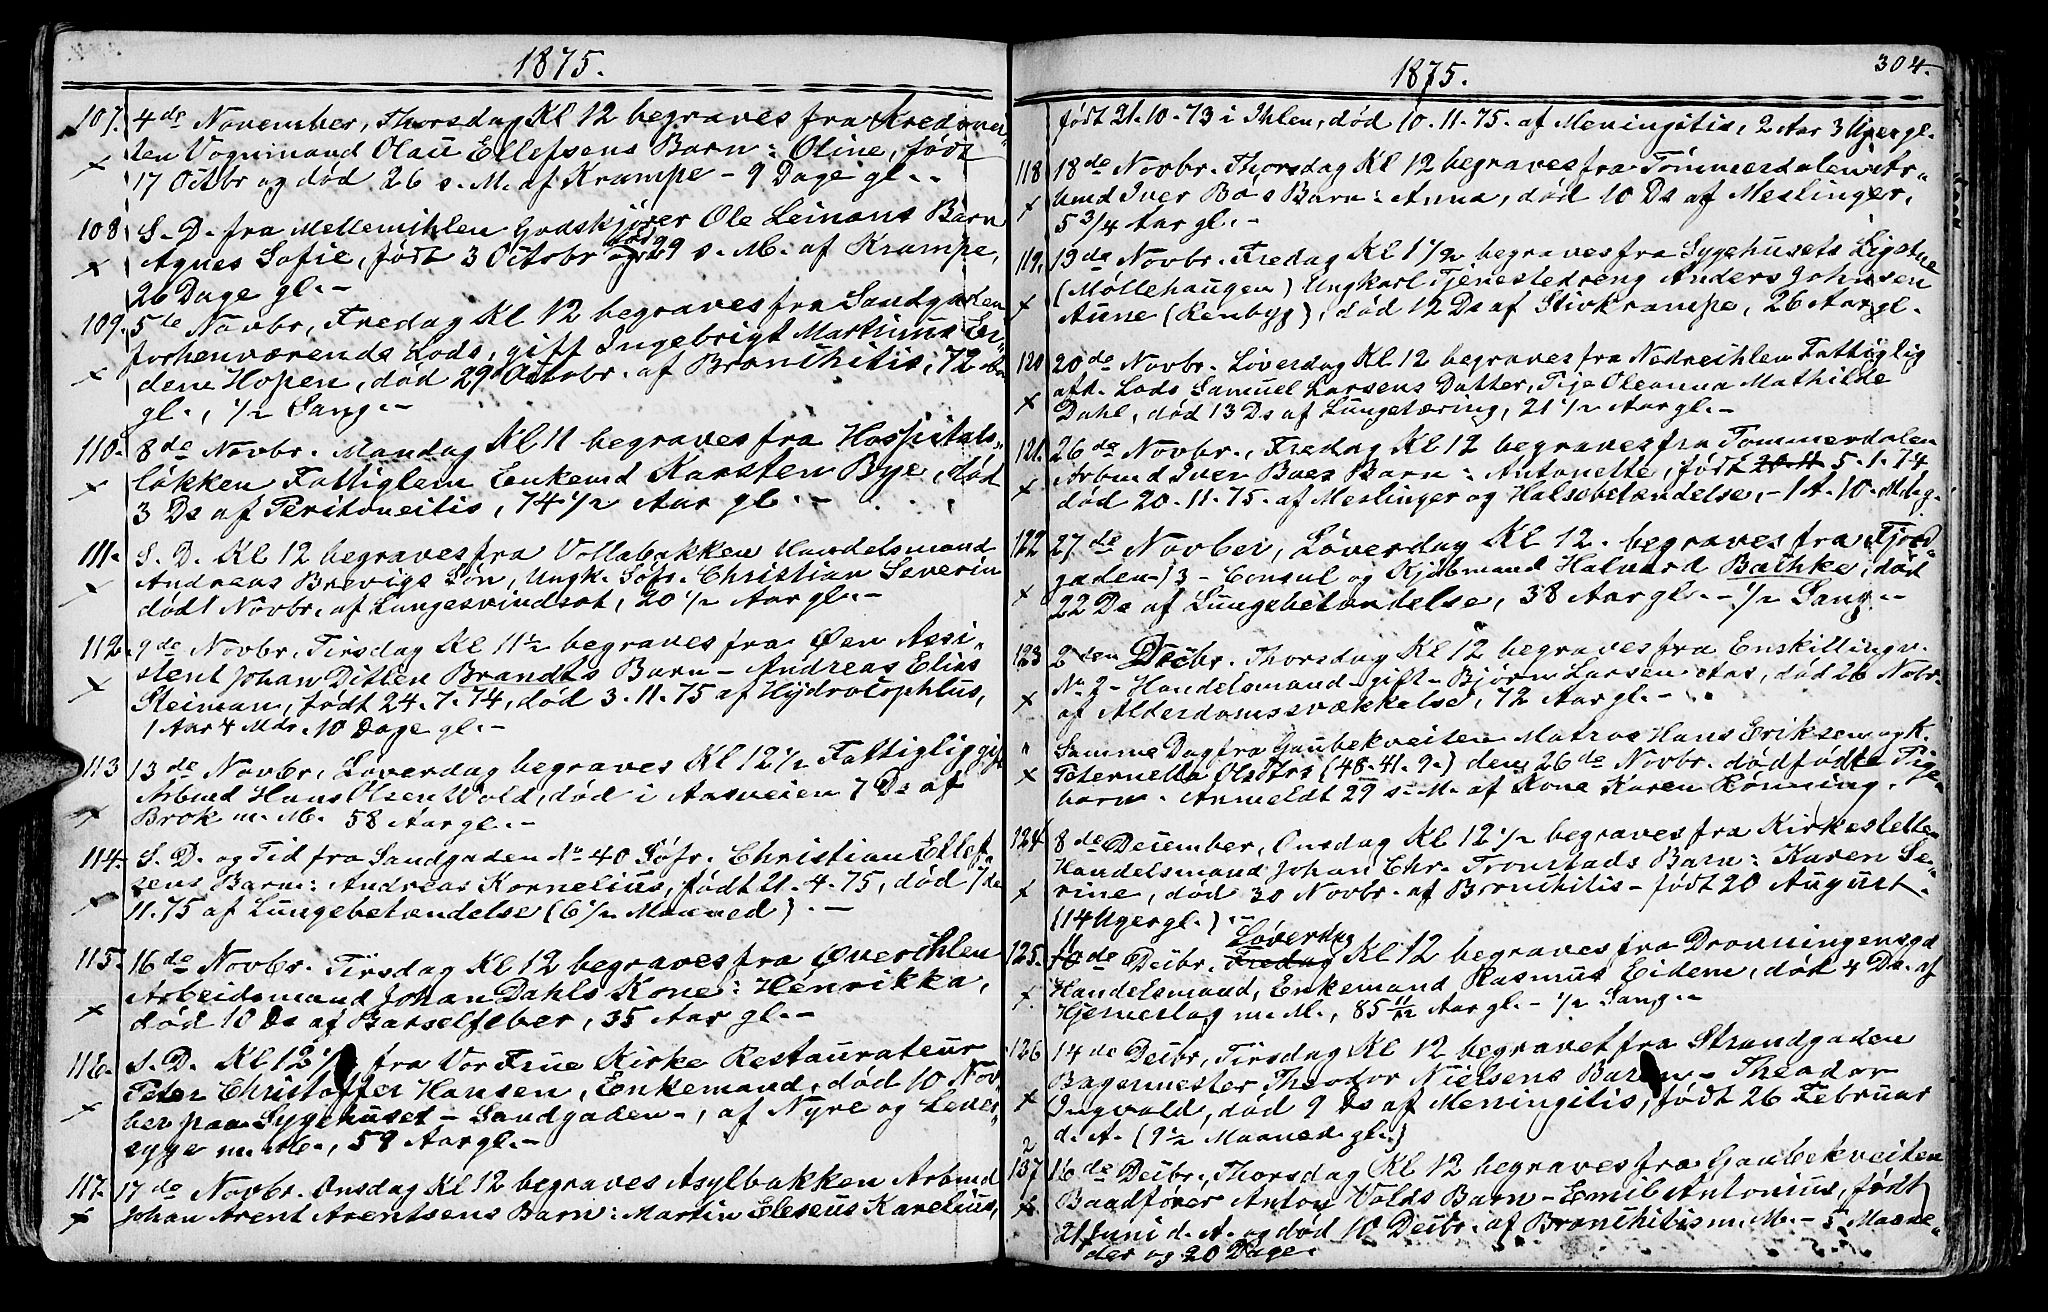 1875.
107. 4de November, Thorsdag Kl 12 begraves fra
ten Vognmand Olau Ellefsens Barn: Oline, født
17 Octbr og død 26 s. M. af Krampe - 9 Dage gl. -
108 S. D. fra Mellemihlen Godskjører Ole Leinans Barn
Agnes Sofie, født 3 Octobr død 29 s. M. af Krampe,
26 Dage gl. -
109. 5te Novbr, Fredag Kl 12 begraves fra Sandgaden
forhenværende Lods, gift Ingebrigt Martinus
dene Hopen, død 29 Octobr. af Bronchitis, 72 Aar
gl., 1/2 Sang. -
110. 8de Novbr. Mandag Kl 11 begraves fra Hospitals-
løkken Fattiglem Enkemd Karsten Bye, død
3 Ds af Peritoneitis, 74 1/2 Aar gl. -
111. S. D. Kl 12 begraves fra Vollabakken Handelsmand
Andreas Brevigs Søn, Ungk. Søfr. Christian Severin
død 1 Novbr. af Lungesvindsot, 20 1/2 Aar gl. -
112. 9de Novbr, Tirsdag Kl 11 1/2 begraves fra Øen Assi-
stent Johan Ditlen Brandts Barn - Andreas Elias
Steiman, født 24. 7. 74, død 3. 11. 75 af Hydrocephlus,
1 Aar 4 Mdr. 10 Dage gl. -
113 13de Novbr, Løverdag begraves Kl 12 1/2 Fattiglig gift
Arbmd Hans Olsen Wold, død i Aasveien 7 Ds af
Brok m. M. 58 Aar gl. -
114. S. D. og Tid fra Sandgaden No 40 Søfr. Christian Ellef-
sens Barn: Andreas Kornelius, født 21. 4. 75, død 7de
11. 75 af Lungebetændelse (6 1/2 Maaned). -
115. 16de Novbr. Tirsdag Kl 12 begraves fra Øverihlen
Arbeidsmand Johan Dahls Kone: Henrikka,
død 10 Ds af Barselfeber, 35 Aar gl. -
116. S. D. Kl 12 1/2 fra Vor Frue Kirke Restaurateur
Peter Christoffer Hansen, Enkemand, død 10 Nov-
ber paa Sygehuset - Sandgaden -, af Nyre og Lever-
syge m. M., 58 Aar gl. -
117. 17de Novbr. Onsdag Kl 12 begraves Asylbakken Arbmd
Johan Arent Arentsens Barn: Martin Eleseus Karelius,
1875. 304.
født 21. 10. 73 i Ihlen, død 10. 11. 75. af Meningitis, 2 Aar 3 Uger gl.
118 18de Novbr. Thorsdag Kl 12 begraves fra Tømmerdalen Ar-
bmd Iver Boes Barn: Anna, død 10 Ds af Meslinger,
5 3/4 Aar gl. -
119. 19de Novbr. Fredag Kl 1 1/2 begraves fra Sygehusets Ligstue
(Møllehaugen) Ungkarl Tjenestedreng Anders Johnsen
Aune (Renbyg), død 12 Ds af Stivkrampe, 26 Aar gl.
120 20de Novbr. Løverdag Kl 12 begraves fra Nedreihlen Fattiglig
afd. Lods Samuel Larsens Datter, Pige Oleanna Mathilde
Dahl, død 13 Ds af Lungetæring, 21 1/2 Aar gl. -
121. 26de Novbr., Fredag Kl 12 begraves fra Tømmerdalen
Arbmd Iver Boes Barn: Antonette, født 20. 11 5. 1. 74,
død 20. 11. 75. af Meslinger og Halsbetændelse, - 1 A. 10 Md. g.
122 27de Novber, Løverdag Kl 12. begraves fra Fjord-
gaden - 3 - Consul og Kjøbmand Halvard Bathke, død
22 Ds af Lungebetændelse, 38 Aar gl. - 1/2 Sang. -
123 2den Decbr. Thorsdag Kl 12 begraves fra Enskillingv.
No 7 - Handelsmand - gift - Bjørn Larsen Aas, død 26 Novbr.
af Alderdomssvækkelse, 72 Aar gl. -
" Samme Dag fra Gaubekveiten Matros Hans Eriksen og K.
Peternella Olsdtrs (48. 41. 9.) den 26de Novbr. dødfødte Pige-
barn. Anmeldt 29 s. M. af Kone Karen Rønning.
124 8de December, Onsdag Kl 12 1/2 begraves fra Kirkesletten
Handelsmand Johan Chr. Tronstads Barn: Karen Se-
rine, død 30 Novbr. af Bronchitis - født 20 August.
(14 Uger gl.) -
125. 11de Decbr. Fredag Løverdag Kl 12 begraves fra Dronningensgd
Handelsmand, Enkemand Rasmus Eidem, død 4 Ds. af
Hjerneslag m. M., 85 11/12 Aar gl. - 1/2 Sang. -
126 14de Decbr, Tirsdag Kl 12 begravet fra Strandgaden
Bagermester Theodor Nielsens Barn - Theodor
Ingvald, død 9 Ds af Meningitis, født 26 Februar
d. A. (9 1/2 Maaned gl.)
127 16de Decbr, Thorsdag Kl 12 begraves fra Gaubekveiten
Baadfører Anton Volds Barn - Emil Antonius, født
21 Juni d. A. og død 10 Decbr. af Bronchitis m. M. - 5 Maane-
der og 20 Dage.